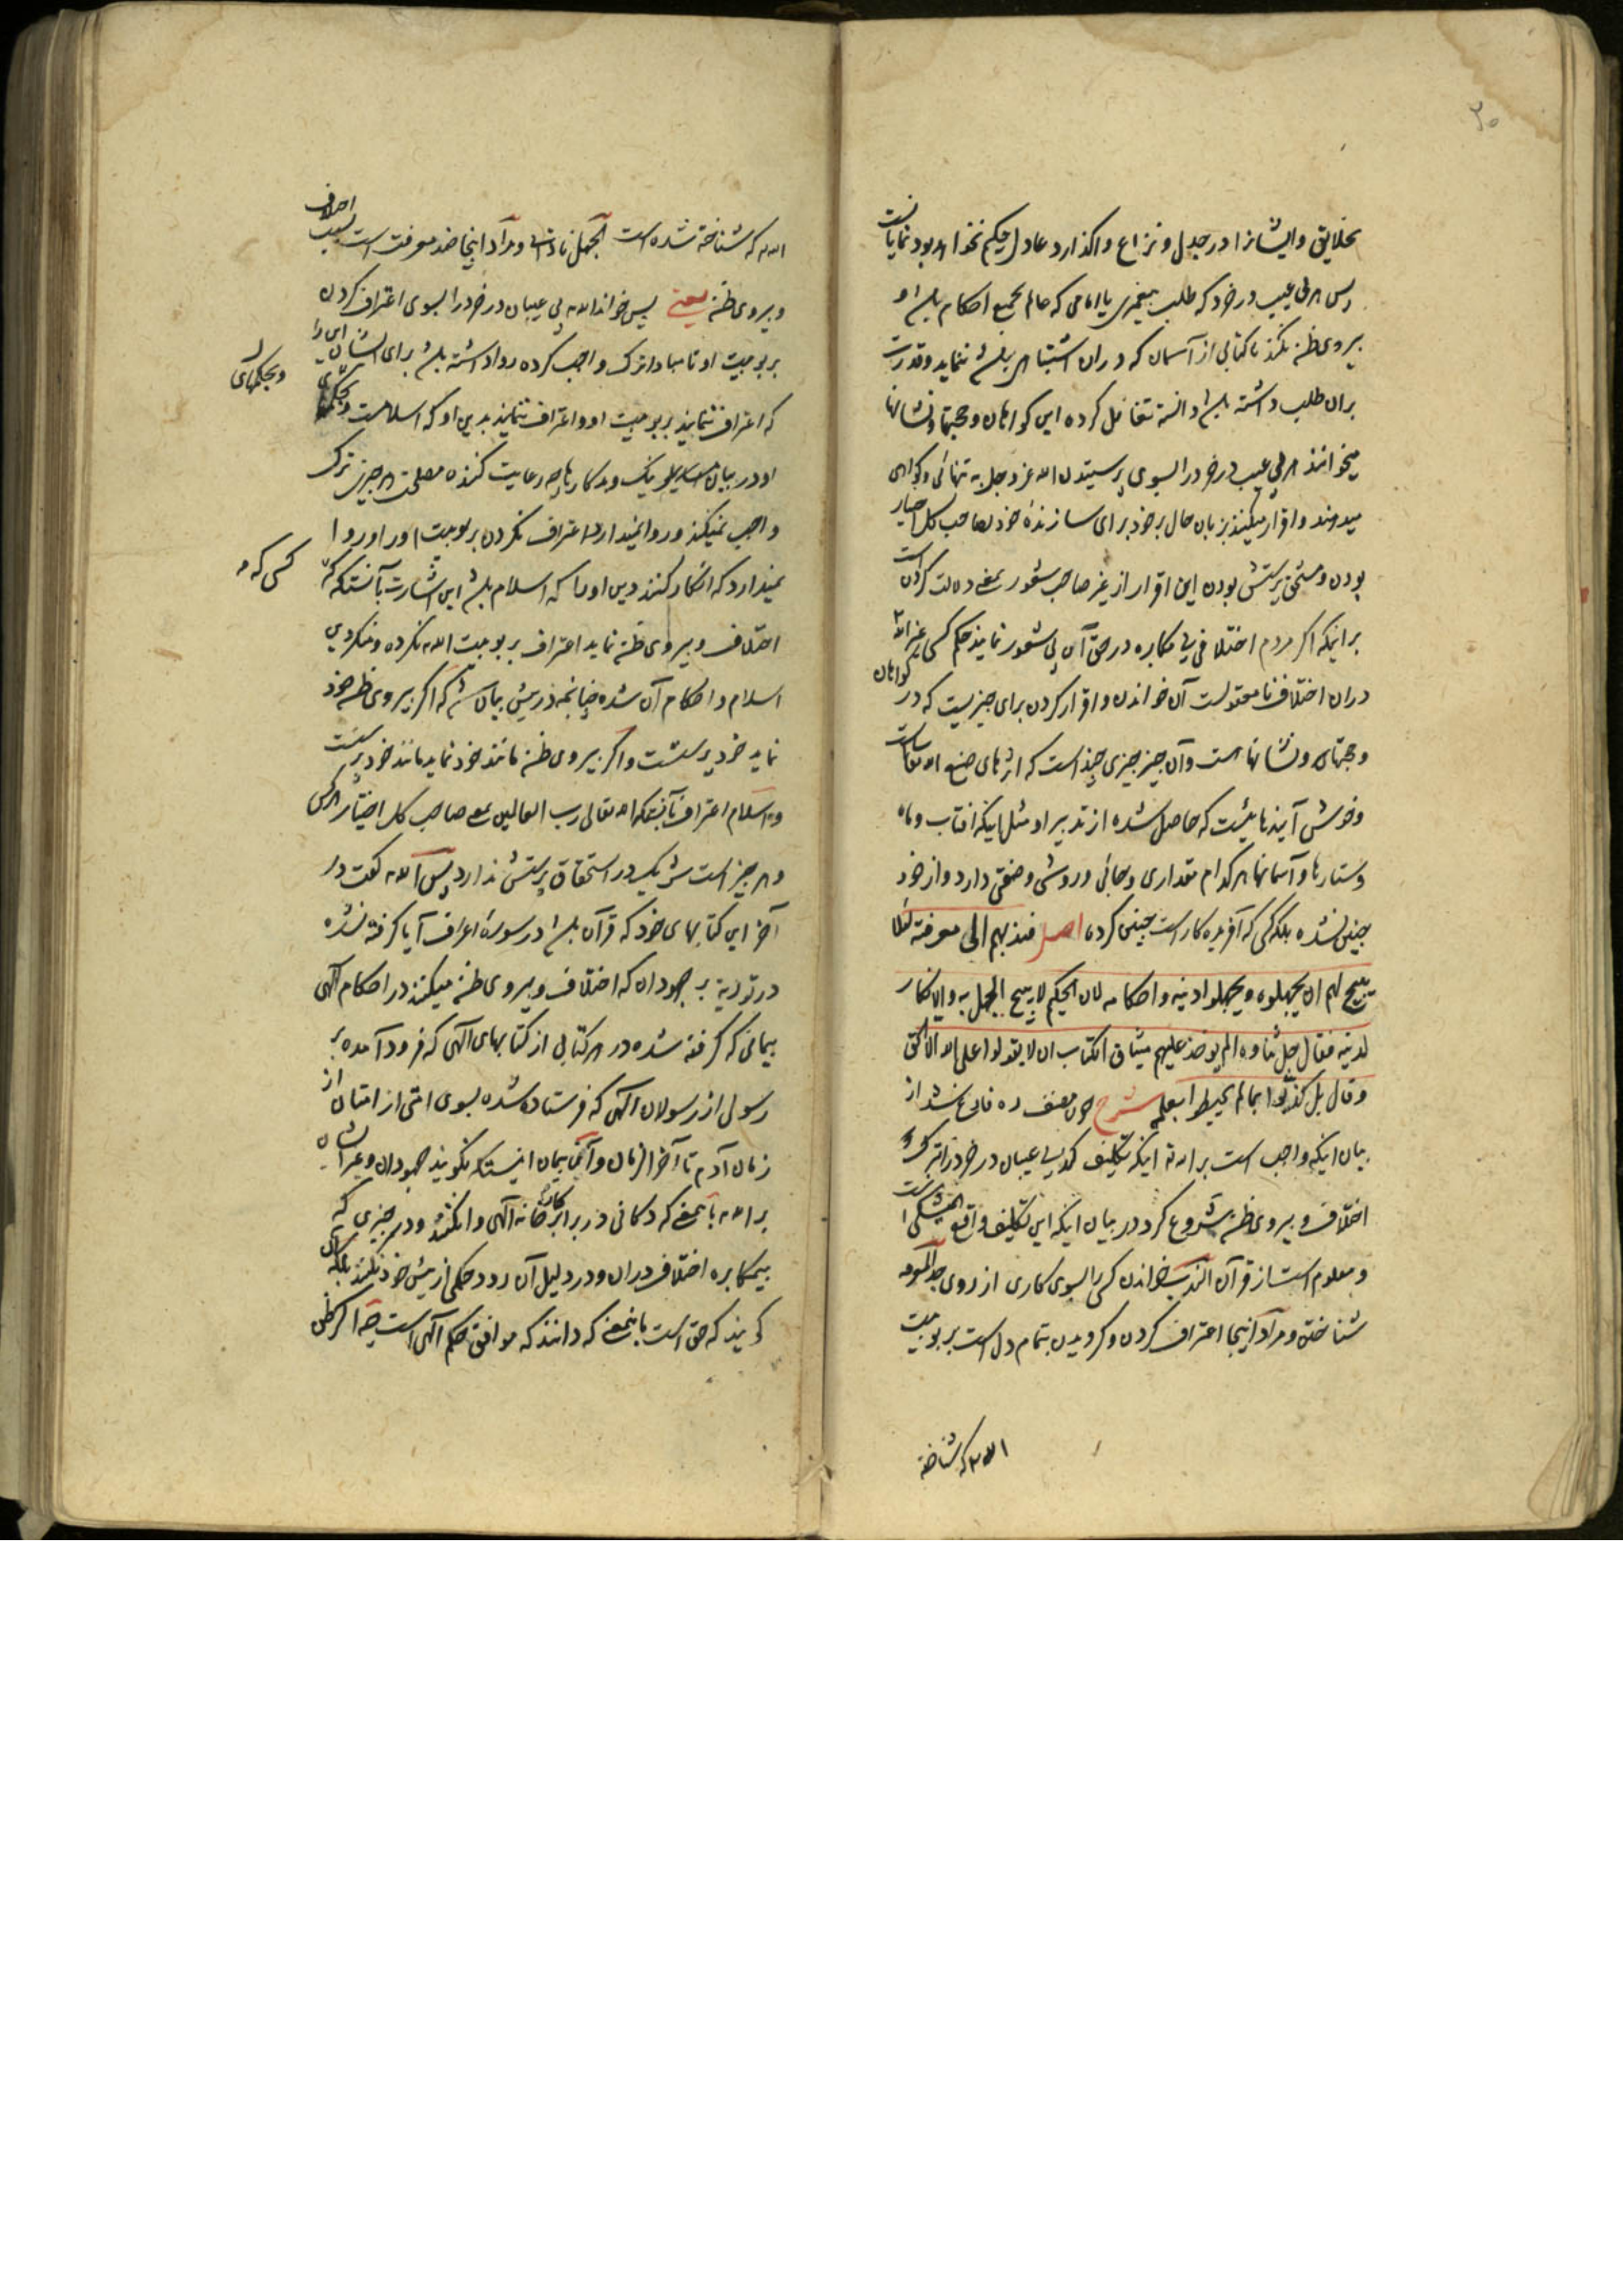 ۲۰
بخلایق و ایشانرا در جدل و نزاع واگذارد عادل حکیم نخواهد بود نمایانست
پس هر بی عیب در خرد که طلب پیغمبری یا امامی که عالم بجمیع احکام باشد و
پیروی ظن نکند یا کتابی از آسمان که در ان اشتباهی باشد ننماید و قدرت
بران طلب داشته باشد دانسته تغافل کرده این کواهان و حجتها و نشانها
میخوانند هر بی عیب در خرد را بسوی پرستیدن الله عز وجل به تنهائی و کواهی
میدهند و اقرار میکنند بزبان حال بر خود برای سازندهٔ خود بصاحب کل اختیار
بودن و مستحق پرستش بودن این اقرار از غیر صاحب شعور بمعنی دلالت کردن است
بر اینکه اگر مردم اختلافی بی مکابره در حق آن بی شعور نمایند حکم کسی غیر الله
دران اختلاف نامعقولست آن خواندن و اقرار کردن برای چیزیست که در کواهان
و حجتها و نشانها هست و آن چیز چیزی چند است که اثرهای صنع الله تعالی است
و خوش آیندهائیست که حاصل شده از تدبیر او مثل اینکه افتاب و ماه
و ستارها و آسمانها هر کدام مقداری و جائی و روشی و صفتی دارد و از خود
چنین نشده بلکه کسی که آفریده کار است چنین کرده اصل فندبهم الی معرفته لئلا
یبیح لهم ان یجهلوه و یجهلوا دینه و احکامه لان الحکیم لا یبیح الجهل به و الانکار
لدینه فقال جل ثناوه الم یوخذ علیهم میثاق الکتاب ان لا یقولوا علی الله الا الحق
و قال بل کذبوا بما لم یحیطوا بعلمه شرح چون مصنف ره فارغ شد از
بیان اینکه واجب است بر الله تعالی اینکه تکلیف کند بی عیبان در خرد را بترک
اختلاف و پیروی ظن شروع کرد در بیان اینکه این تکلیف واقع است
و معلوم است از قرآن الندب خواندن کسی را بسوی کاری از روی جد المعرفه
شناختن و مراد اینجا اعتراف کردن و کرویدن بتمام دل است بربوبیت
الله که شناخته
الله که شناخته شده است الجهل نادانی و مراد اینجا ضد معرفت است بسبب اختلاف
و پیروی ظن یعنی پس خواند الله بی عیبان در خرد را بسوی اعتراف کردن
بربوبیت او تا مبادا ترک واجب کرده روا داشته باشد برای ایشان این را
که اعتراف ننمایند بربوبیت او و اعتراف ننمایند بدین او که اسلامست و بحکمهای
و بحکمهای
او در بیان مسایل نیک و بد کارها چه رعایت کننده مصلحت هر چیز ترک
واجب نمیکند و روا نمیدارد اعتراف نکردن بربوبیت او را و روا
نمیدارد که انکار کنند دین او را که اسلام باشد این اشارت بآنست که
کسی که
اختلاف و پیروی ظن نماید اعتراف بربوبیت الله نکرده و نکرویده
اسلام و احکام آن شده چنانچه در پیش بیان شد که اگر پیروی ظن خود
نماید خود پرستست و اگر پیروی ظن مانند خود نماید مانند خود پرست
و اسلام اعتراف بآنستکه الله تعالی رب العالمین بمعنی صاحب کل اختیار هر کس
و هر چیز است شریک در استحقاق پرستش ندارد پس الله گفت در
آخر این کتابهای خود که قرآن باشد در سورهٔ اعراف آیا گرفته نشده
در توریة بر جهودان که اختلاف و پیروی ظن میکنند در احکام الهی
پیمانی که گرفته شده در هر کتابی از کتابهای الهی که فرود آمده بر
رسولی از رسولان الهی که فرستاده شده بسوی امتی از امتان از
زمان آدم تا آخر الزمان و آن پیمان اینستکه نگویند جهودان و غیر ایشان
بر الله بمعنی که دکانی در برابر کارخانه الهی وا نکنند و در چیزی که
بیمکابره اختلاف دران و در دلیل آن رود حکمی از پیش خود نکنند بلکه
گویند که حق است بآنمعنی که دانند که موافق حکم الهی است چه اگر ظن